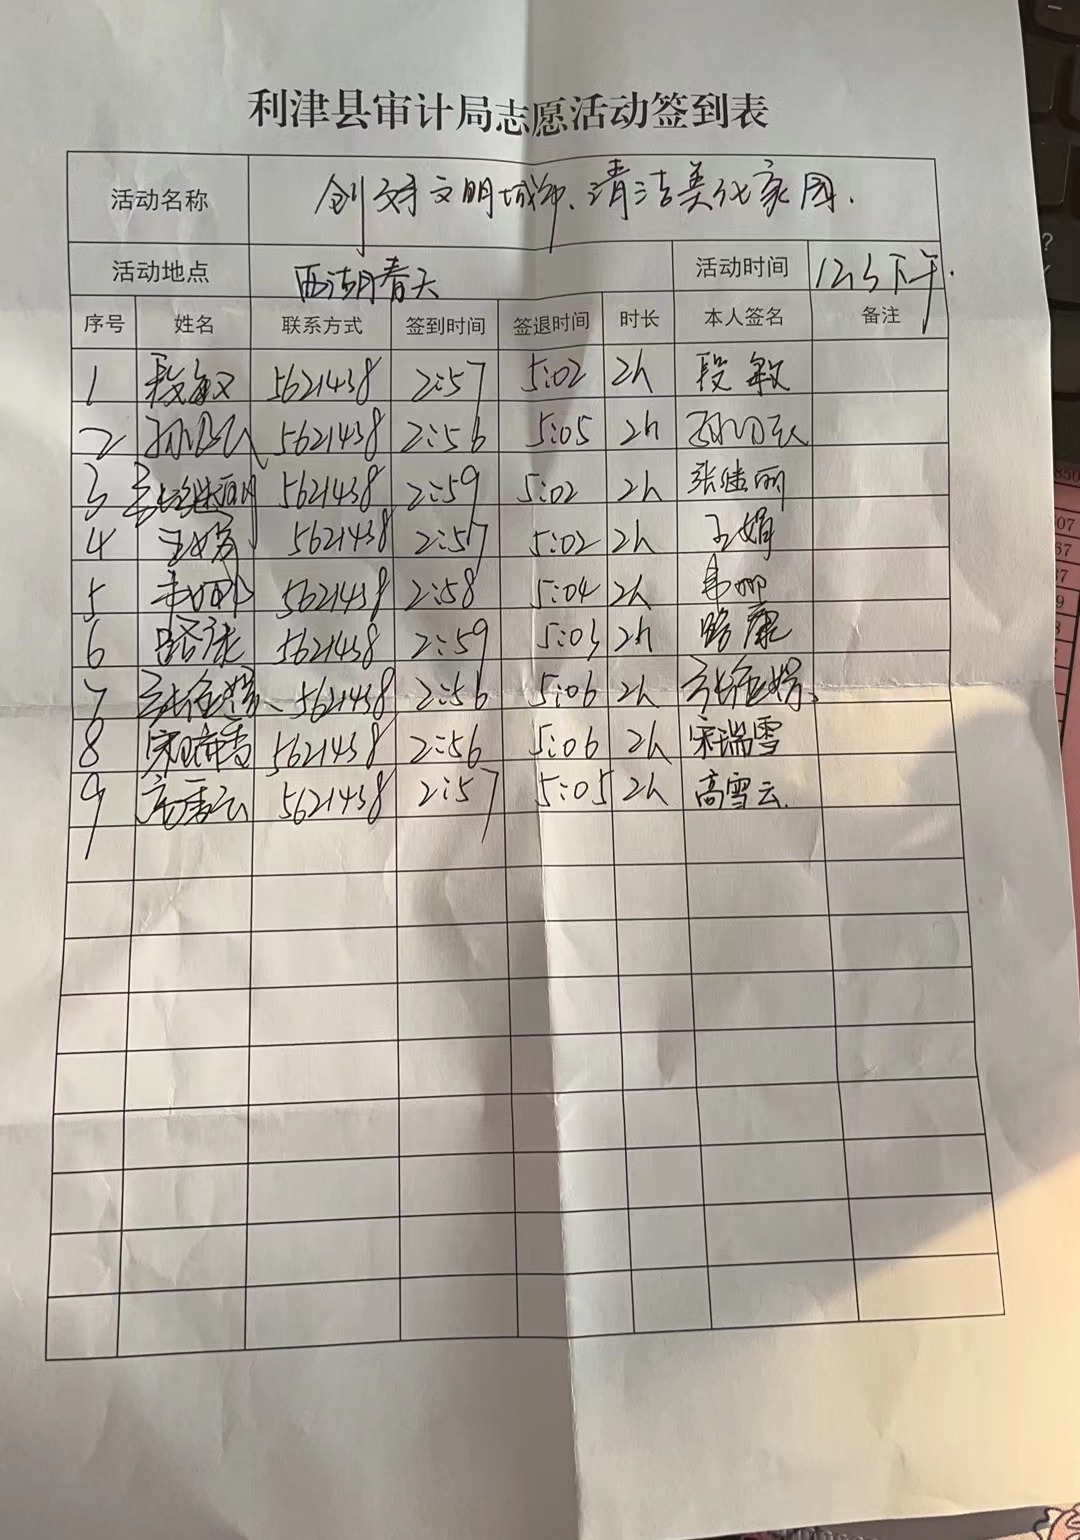 利津县审计局志愿活动签到表
活动名称 创文明城市、清洁美化家园.
活动地点 西湖春天 活动时间 12.3下午.
序号 姓名 联系方式 签到时间 签退时间 时长 本人签名 备注
1 段敏 5621438 2:57 5:02 2h 段敏
2 5621438 2:56 5:05 2h
3 张继丽 5621438 2:59 5:02 2h 张继丽
4 王娟 5621438 2:57 5:02 2h 王娟
5 5621438 2:58 5:04 2h
6 路康 5621438 2:59 5:03 2h 路康
7 5621438 2:56 5:06 2h
8 宋瑞雪 5621438 2:56 5:06 2h 宋瑞雪
9 高雪云 5621438 2:57 5:05 2h 高雪云.